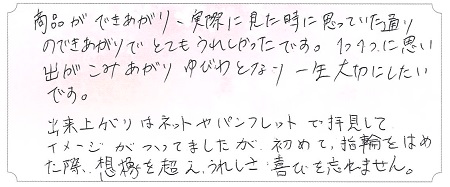 商品ができあがり、実際に見た時に思っていた通り
のできあがりでとてもうれしかったです。1つ1つに思い
出がこみあがりゆびわとなり一生大切にしたい
です。
出来上がりはネットやパンフレットで拝見して
イメージがついてましたが、初めて、指輪をはめ
た際、想像を超え、うれしさ、喜びを忘れません。